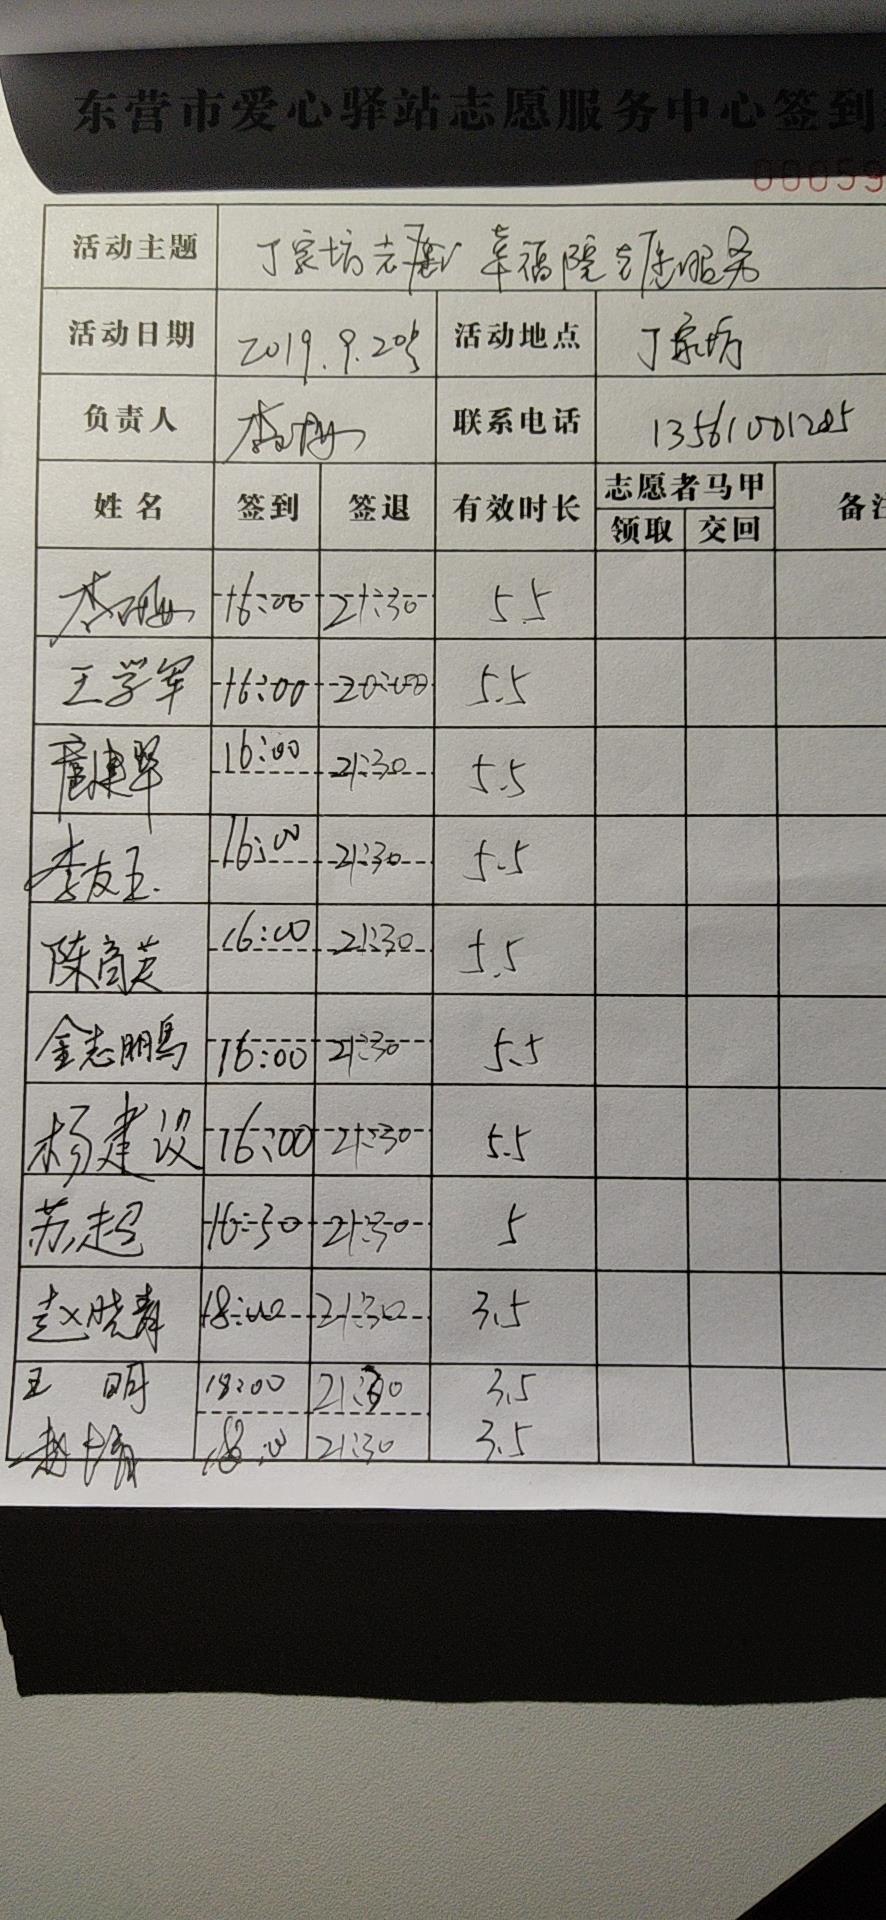 东营市爱心驿站志愿服务中心签到
00059
活动主题 丁家坊 幸福院志愿服务
活动日期 2019.9.20 活动地点 丁家坊
负责人 联系电话 13561001285
姓名 签到 签退 有效时长 志愿者马甲 领取 交回 备注
16:00 21:30 5.5
王学军 16:00 5.5
16:00 21:30 5.5
李友玉 16:00 21:30 5.5
陈商英 16:00 21:30 5.5
金志鹏 16:00 21:30 5.5
杨建设 16:00 21:30 5.5
苏超 16:30 21:30 5
赵晓青 18:00 21:30 3.5
王明 18:00 21:30 3.5
18:00 21:30 3.5